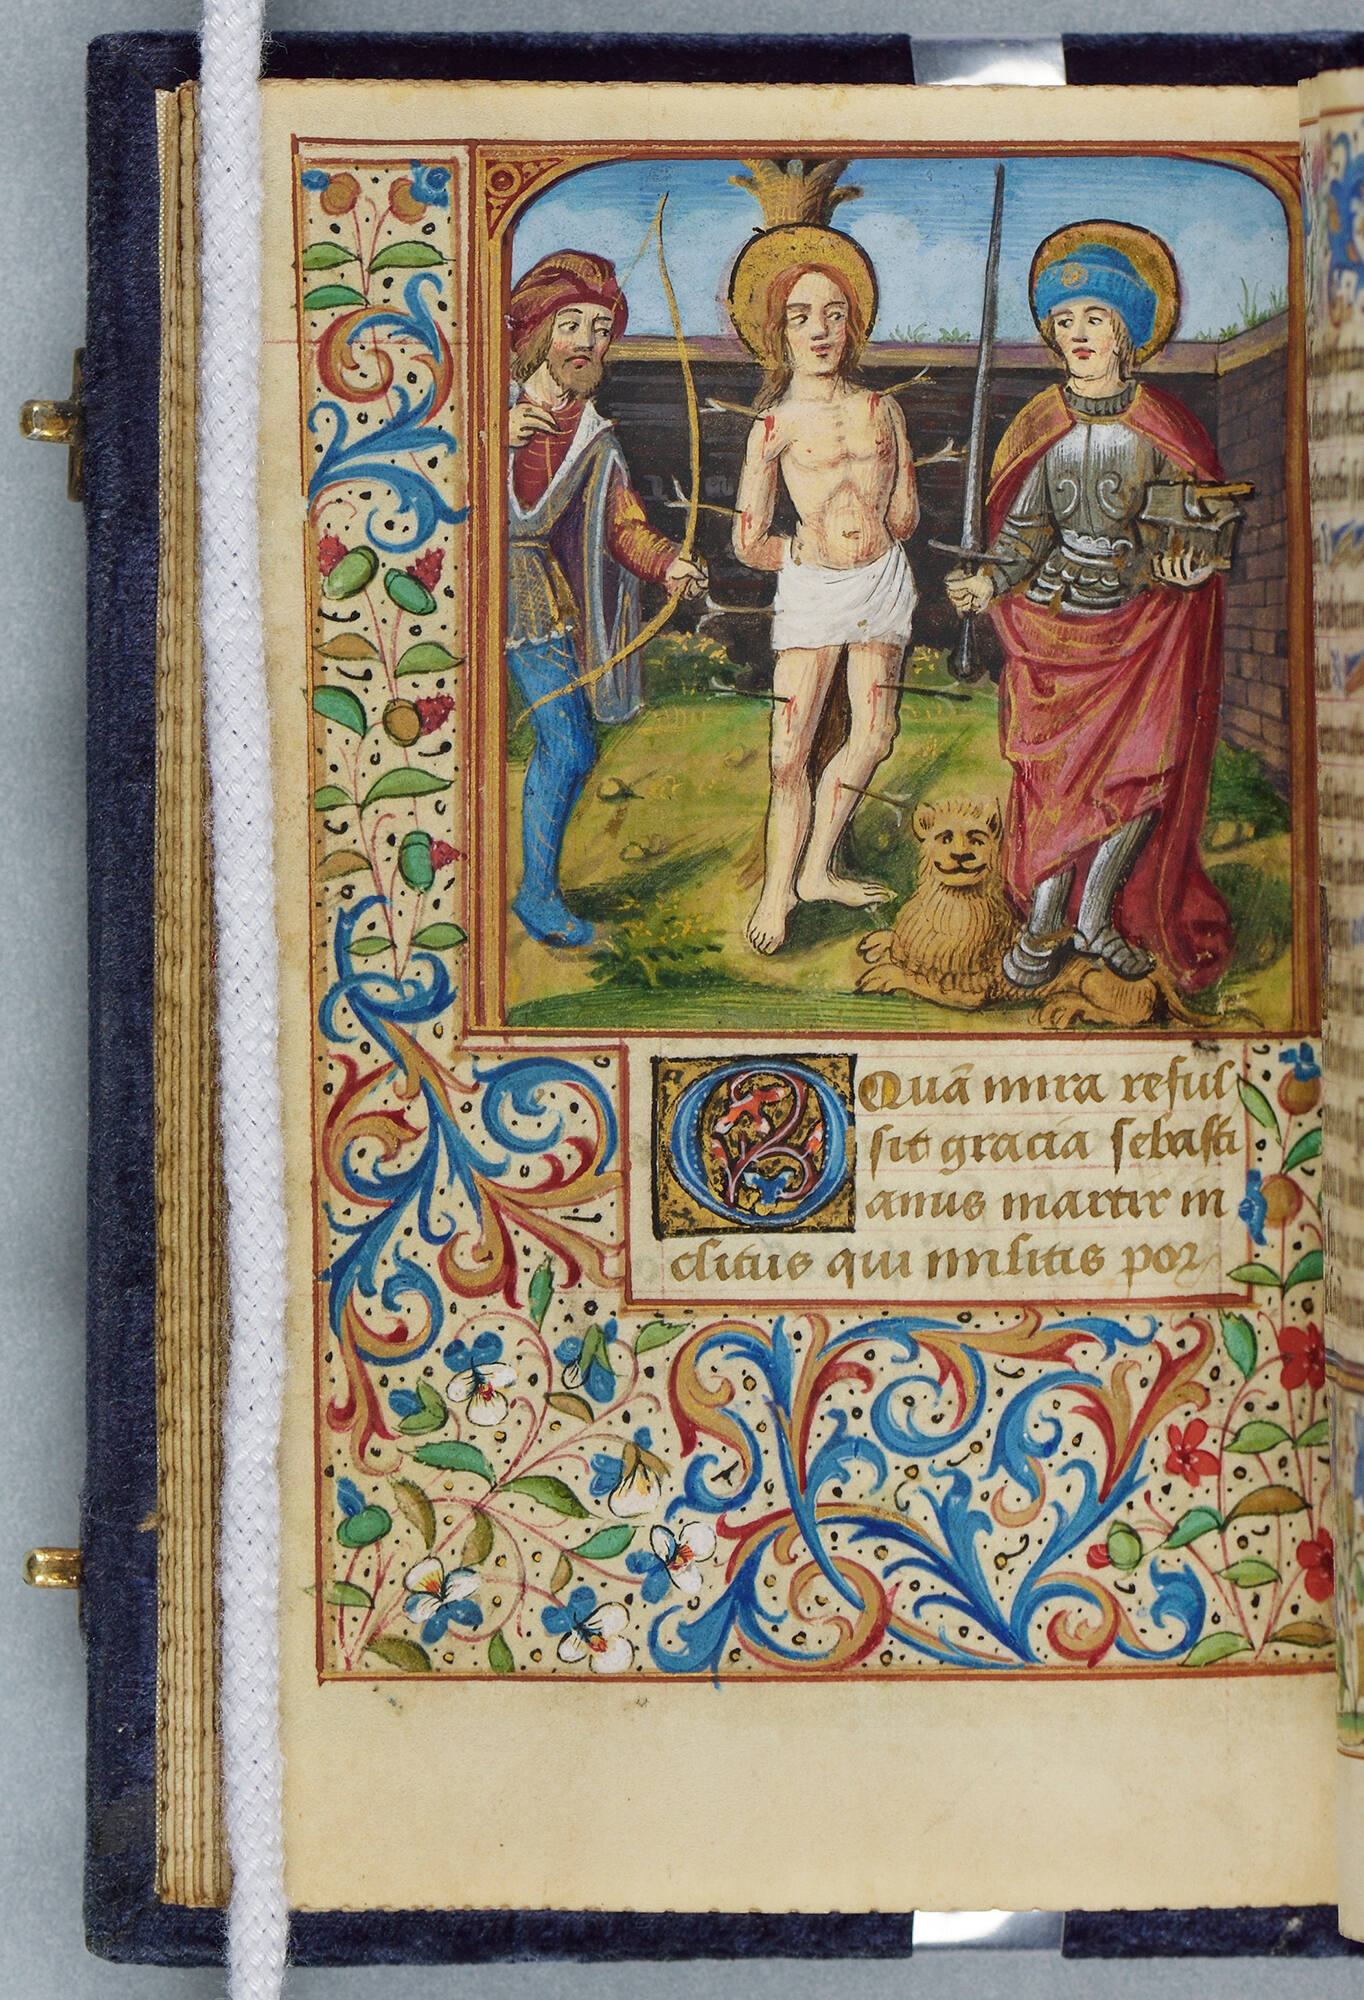 O Quā mira reful
sit gracia sebasti
anus martir in
clitus qui militis por